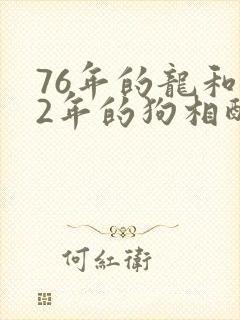 76年的龍和
2年的狗相配
何紅衛